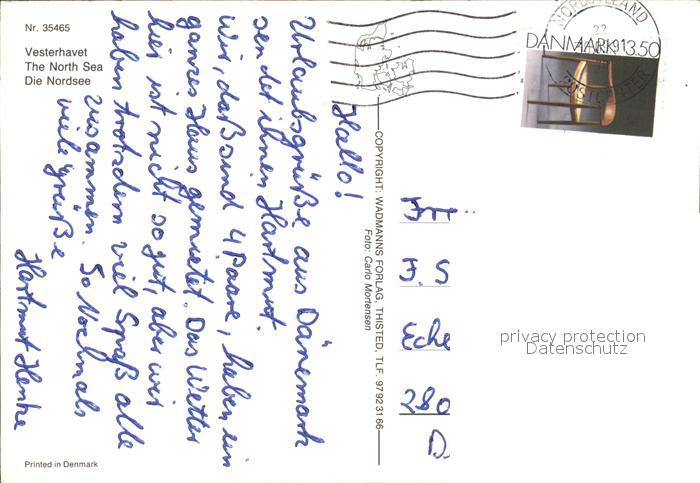 Nr. 35465
Vesterhavet
The North Sea
Die Nordsee
Hallo!
Urlaubsgrüße aus Dänemark
sendet ihnen Hartmut.
Wir, daß sind 4 Paare, haben ein
ganzes Haus gemietet. Das Wetter
hier ist nicht so gut, aber wir
haben trotzdem viel Spaß alle
zusammen. So Nochmals
viele grüße
Hartmut Henke
Printed in Denmark
COPYRIGHT: WADMANNS FORLAG, THISTED, TLF. 97923166
Foto: Carlo Mortensen
DANMARK 3.50
POSTCENTER
J. S
Eche
280
D.
privacy protection
Datenschutz